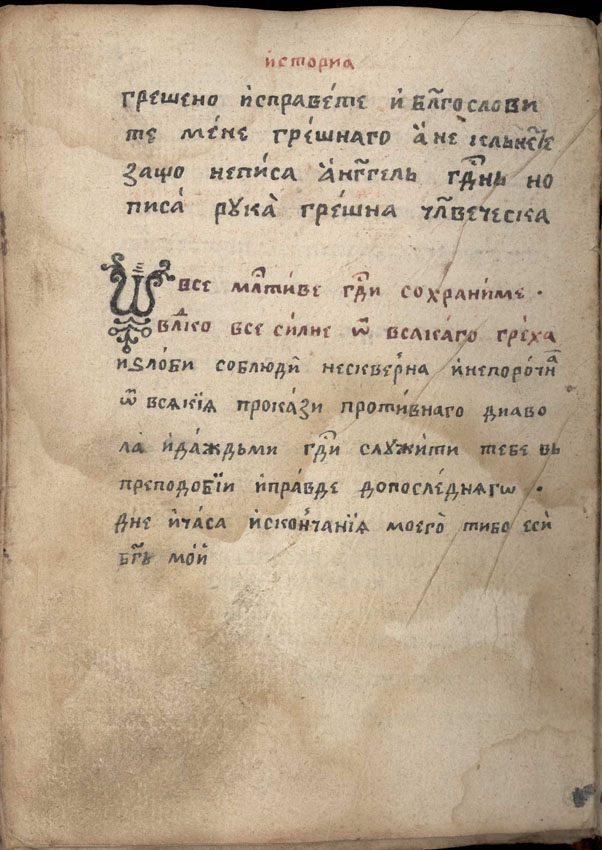 и҆сторїа
грешено и҆справе́те и҆ бл҃гослови
те ме́не гре́шнаго а҆ не
защо непи́са а҆нг҃гель гд҃нь но
писа́ рука̀ гре́шна чл҃веческа
Ѿ все мл҃тиве гд҃и сохраниме ·
вл҃ко все си́лне ѿ всѧкаго греха
и ѕло́би соблюди̑ нескверна и҆непоро́чна
ѿ всѧкиѧ прока́зи проти́внаго диаво
ла и҆да́ждьми гд҃и служи́ти тебе вь
преподо́бїи и҆пра́вде допосле́днѧгѡ ·
дне и҆ча́са и҆сконча́нїѧ моего̀ тибо есѝ
бг҃ь мо́й